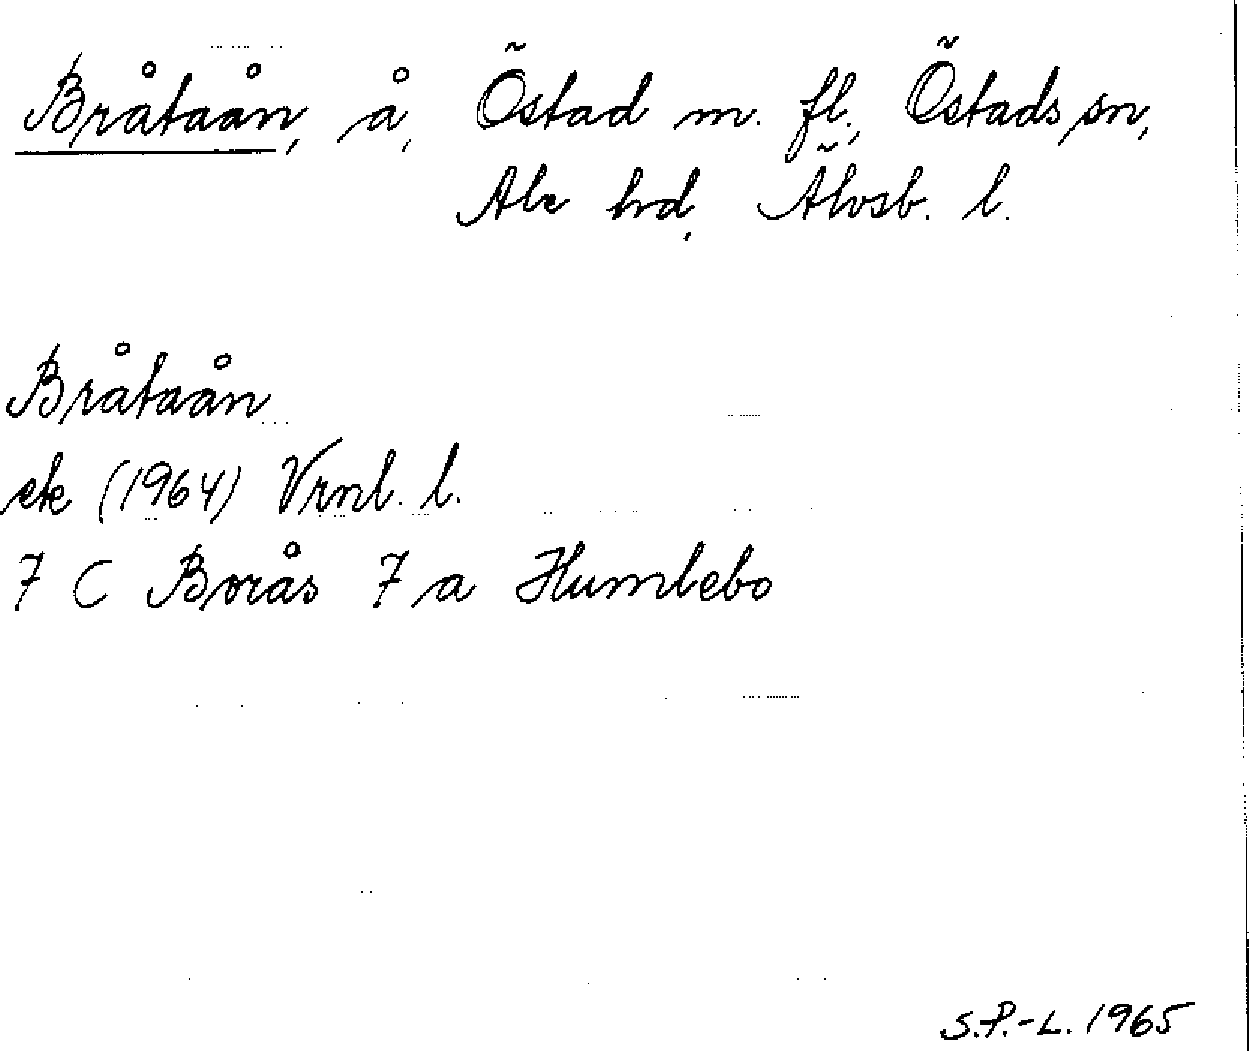 Bråtaån, å, Östad m. fl., Östads sn,
Ale hd, Älvsb. l.
Bråtaån
ek (1964) Vrml. l.
7 C Borås 7 a Humlebo
S.P.-L. 1965